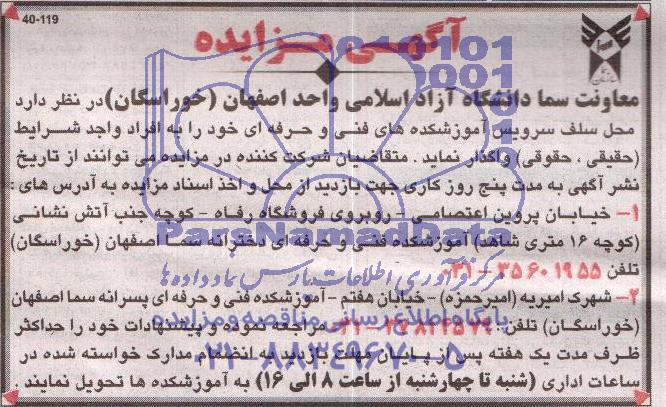 40-119
آگهی مزایده
معاونت سما دانشگاه آزاد اسلامی واحد اصفهان (خوراسگان) در نظر دارد
محل سلف سرویس آموزشکده های فنی و حرفه ای خود را به افراد واجد شرایط
(حقیقی ، حقوقی) واگذار نماید . متقاضیان شرکت کننده در مزایده می توانند از تاریخ
نشر آگهی به مدت پنج روز کاری جهت بازدید از محل و اخذ اسناد مزایده به آدرس های :
۱- خیابان پروین اعتصامی - روبروی فروشگاه رفاه - کوچه جنب آتش نشانی
ParsNamadData
(کوچه ۱۶ متری شاهد) آموزشکده فنی و حرفه ای دخترانه سما اصفهان (خوراسگان)
تلفن ۳۵۶۰۱۹۵۵ - ۰۳۱
مرکز فرآوری اطلاعات پارس نماد داده ها
۲- شهرک امیریه (امیرحمزه) - خیابان هفتم - آموزشکده فنی و حرفه ای پسرانه سما اصفهان
پایگاه اطلاع رسانی مناقصه و مزایده
(خوراسگان) تلفن: مراجعه نموده و پیشنهادات خود را حداکثر
ظرف مدت یک هفته پس از پایان مهلت بازدید به انضمام مدارک خواسته شده در
۰۲۱-۸۸۳۴۹۶۷۰-۵
ساعات اداری (شنبه تا چهارشنبه از ساعت ۸ الی ۱۶) به آموزشکده ها تحویل نمایند .